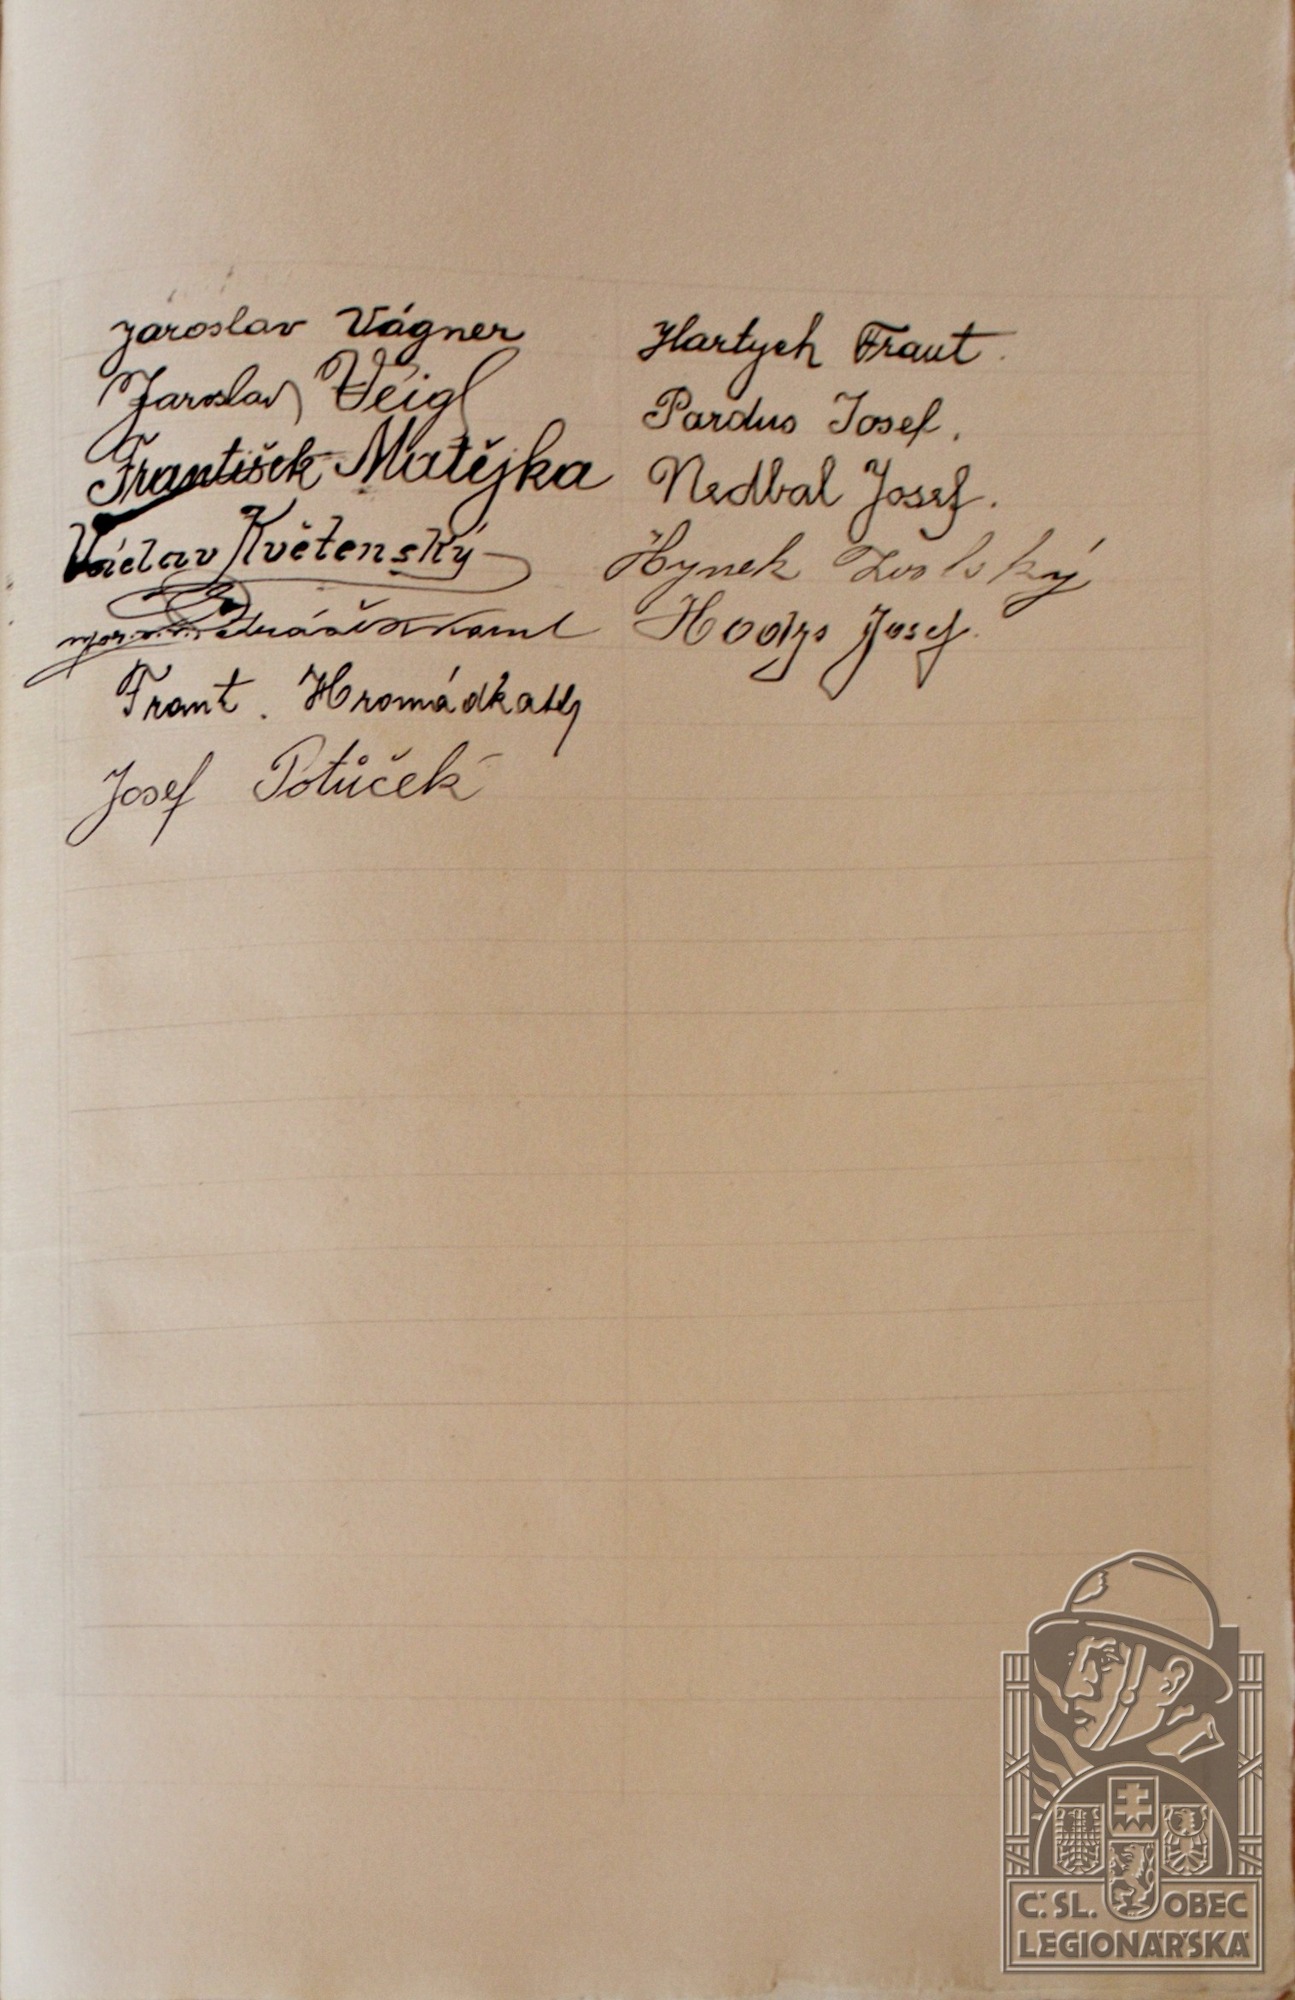 Jaroslav Vágner
Jaroslav Veigl
František Matějka
Václav Květenský
Frant. Hromádka
Josef Potůček
Hartych Frant.
Pardus Josef.
Nedbal Josef.
Hynek
Josef.
Č. SL. OBEC
LEGIONÁŘSKÁ